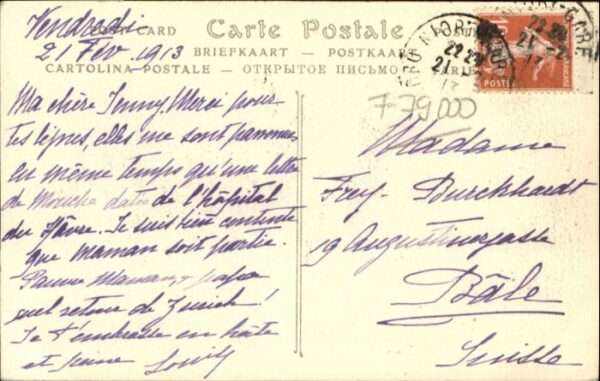 Vendredi
21 Fév. 1913
CARD Carte Postale
BRIEFKAART - POSTKAART
CARTOLINA POSTALE - ОТКРЫТОЕ ПИСЬМО
GARE
22 21
POSTES
7-79000
Ma chère Jenny. Merci pour
tes lignes, elles me sont parvenues
en même temps qu'une lettre
de Moucha datée de l'hôpital
du Hâvre. Je suis bien contente
que maman soit partie.
Pauvre Maman, papa
quel retour de Zurich!
Je t'embrasse en hâte
et
Madame
Frey-Burckhardt
19 Augustinergasse
Bâle
Suisse